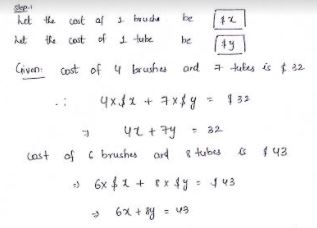 Step:1
Let the cost of 1 brushe be $x
Let the cost of 1 tube be $y
Given: cost of 4 brushes and 7 tubes is $ 32
∴ 4×$x + 7×$y = $32
⇒ 4x + 7y = 32
Cost of 6 brushes and 8 tubes is $43
⇒ 6×$x + 8×$y = $43
⇒ 6x + 8y = 43